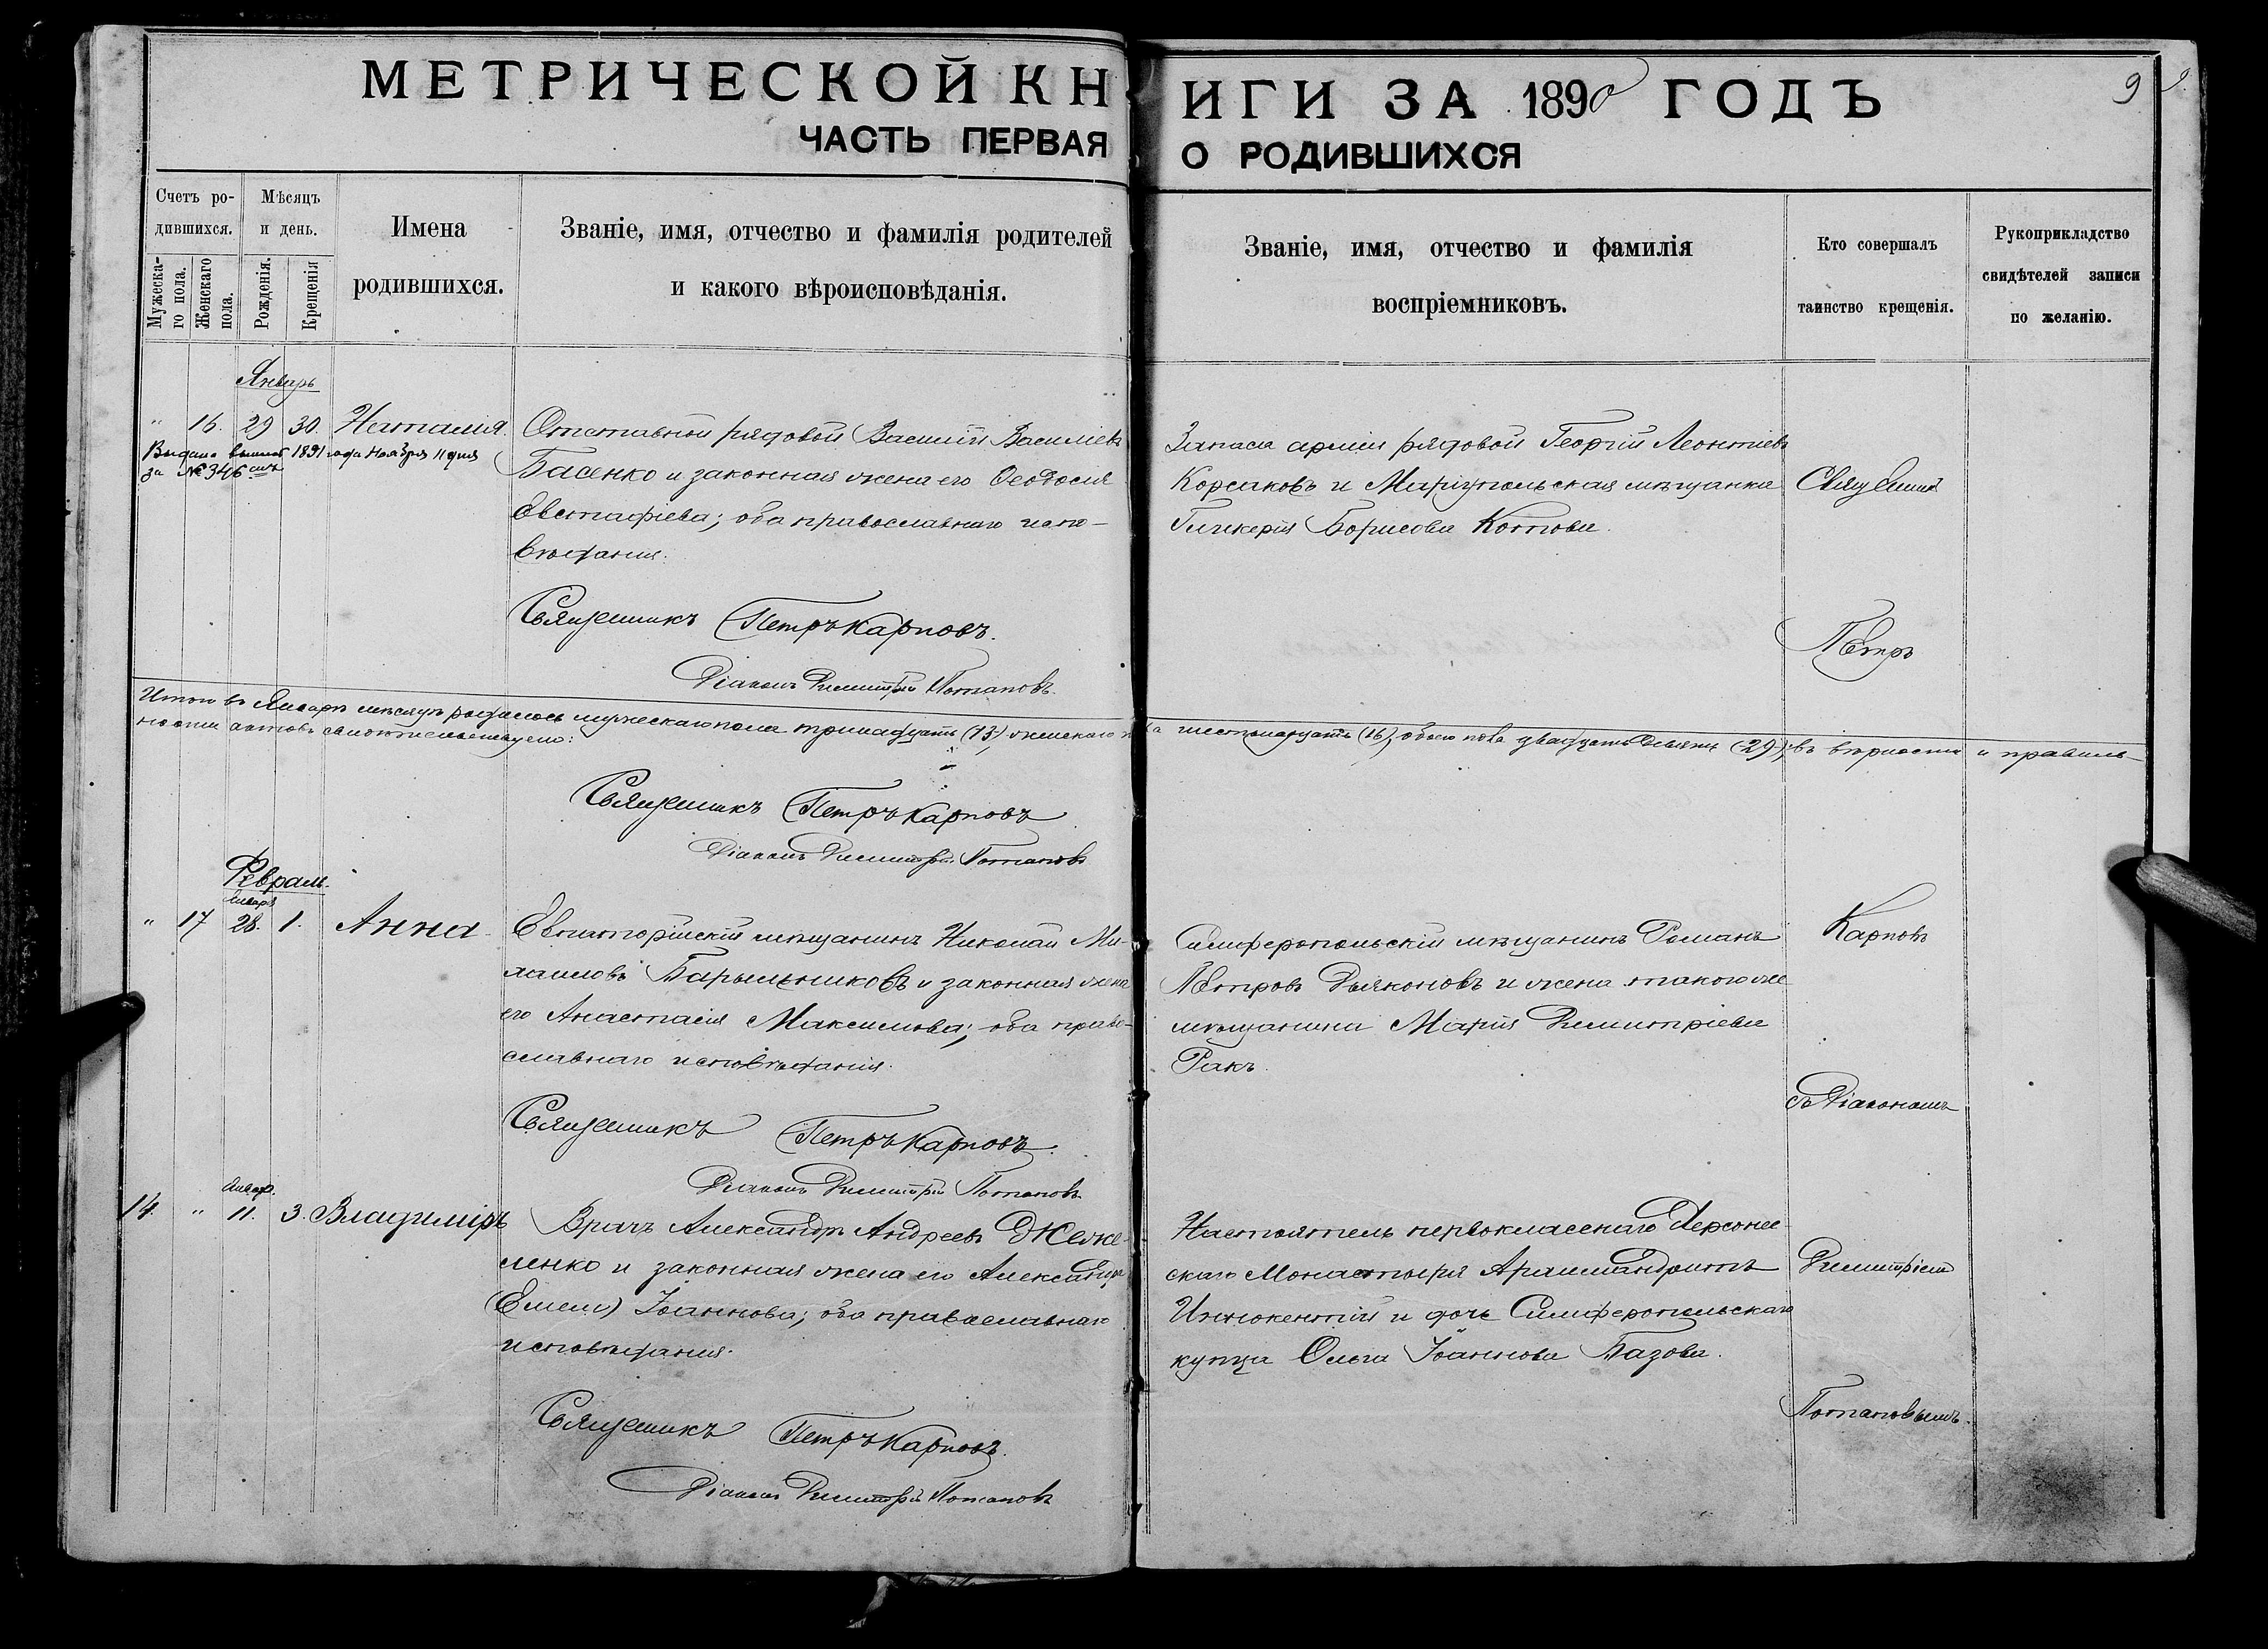 МЕТРИЧЕСКОЙ КНИГИ ЗА 1890 ГОДЪ
9
ЧАСТЬ ПЕРВАЯ О РОДИВШИХСЯ
Счетъ ро-
дившихся.
Мужеска-
го пола.
Женскаго
пола.
Мѣсяцъ
и день.
Рожденія.
Крещенія
Имена
родившихся.
Званіе, имя, отчество и фамилія родителей
и какого вѣроисповѣданія.
Званіе, имя, отчество и фамилія
воспріемниковъ.
Кто совершалъ
таинство крещенія.
Рукоприкладство
свидѣтелей записи
по желанію.
Январь
" 16. 29 30. Наталія.
Выдана выпись 1891 года Ноября 11 дня
за № 346
Отставной рядовой Василій Васильевъ
Басенко и законная жена его Ѳеодосія
Евстафіева; оба православнаго испо-
вѣданія.
Запаса арміи рядовой Георгій Леонтіевъ
Корсаковъ и Маріупольская мѣщанка
Гликерія Борисова Котова.
Священникъ Петръ Карповъ.
Діаконъ Димитрій Потаповъ.
Итого въ Январѣ мѣсяцѣ родилось мужескаго пола тринадцать (13), женскаго пола шестнадцать (16), обоего пола двадцать девять (29); въ вѣрности и правиль-
ности актовъ свидѣтельствуемъ:
Священникъ Петръ Карповъ
Діаконъ Димитрій Потаповъ
Февраль.
Январь
" 17 28. 1. Анна
Евпаторійскій мѣщанинъ Николай Ми-
хаиловъ Барыльниковъ и законная жена
его Анастасія Максимова; оба право-
славнаго исповѣданія.
Симферопольскій мѣщанинъ Романъ
Петровъ Дьяконовъ и жена такого же
мѣщанина Марія Димитріева
Ракъ.
Священникъ Петръ Карповъ.
Діаконъ Димитрій Потаповъ
Январ.
14. " 11. 3. Владиміръ
Врачъ Александръ Андреевъ
ленко и законная жена его Александра
Іоаннова; оба православнаго
исповѣданія.
Настоятель первокласснаго Херсонес-
скаго Монастыря Архимандритъ
Иннокентій и дочь Симферопольскаго
купца Ольга Іоаннова Пазова.
Священникъ Петръ Карповъ.
Діаконъ Димитрій Потаповъ
Священникъ
Петръ
Карповъ
съ Діакономъ
Димитріемъ
Потаповымъ.